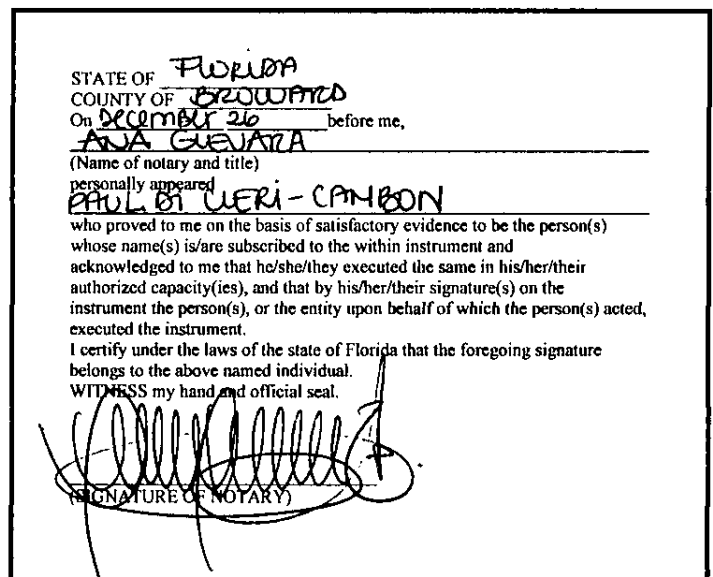 STATE OF FLORIDA
COUNTY OF BROWARD
On December 26 before me,
ANA GUEVARA
(Name of notary and title)
personally appeared
PAUL DI VIERI-CAMBON
who proved to me on the basis of satisfactory evidence to be the person(s)
whose name(s) is/are subscribed to the within instrument and
acknowledged to me that he/she/they executed the same in his/her/their
authorized capacity(ies), and that by his/her/their signature(s) on the
instrument the person(s), or the entity upon behalf of which the person(s) acted,
executed the instrument.
I certify under the laws of the state of Florida that the foregoing signature
belongs to the above named individual.
WITNESS my hand and official seal.
(SIGNATURE OF NOTARY)